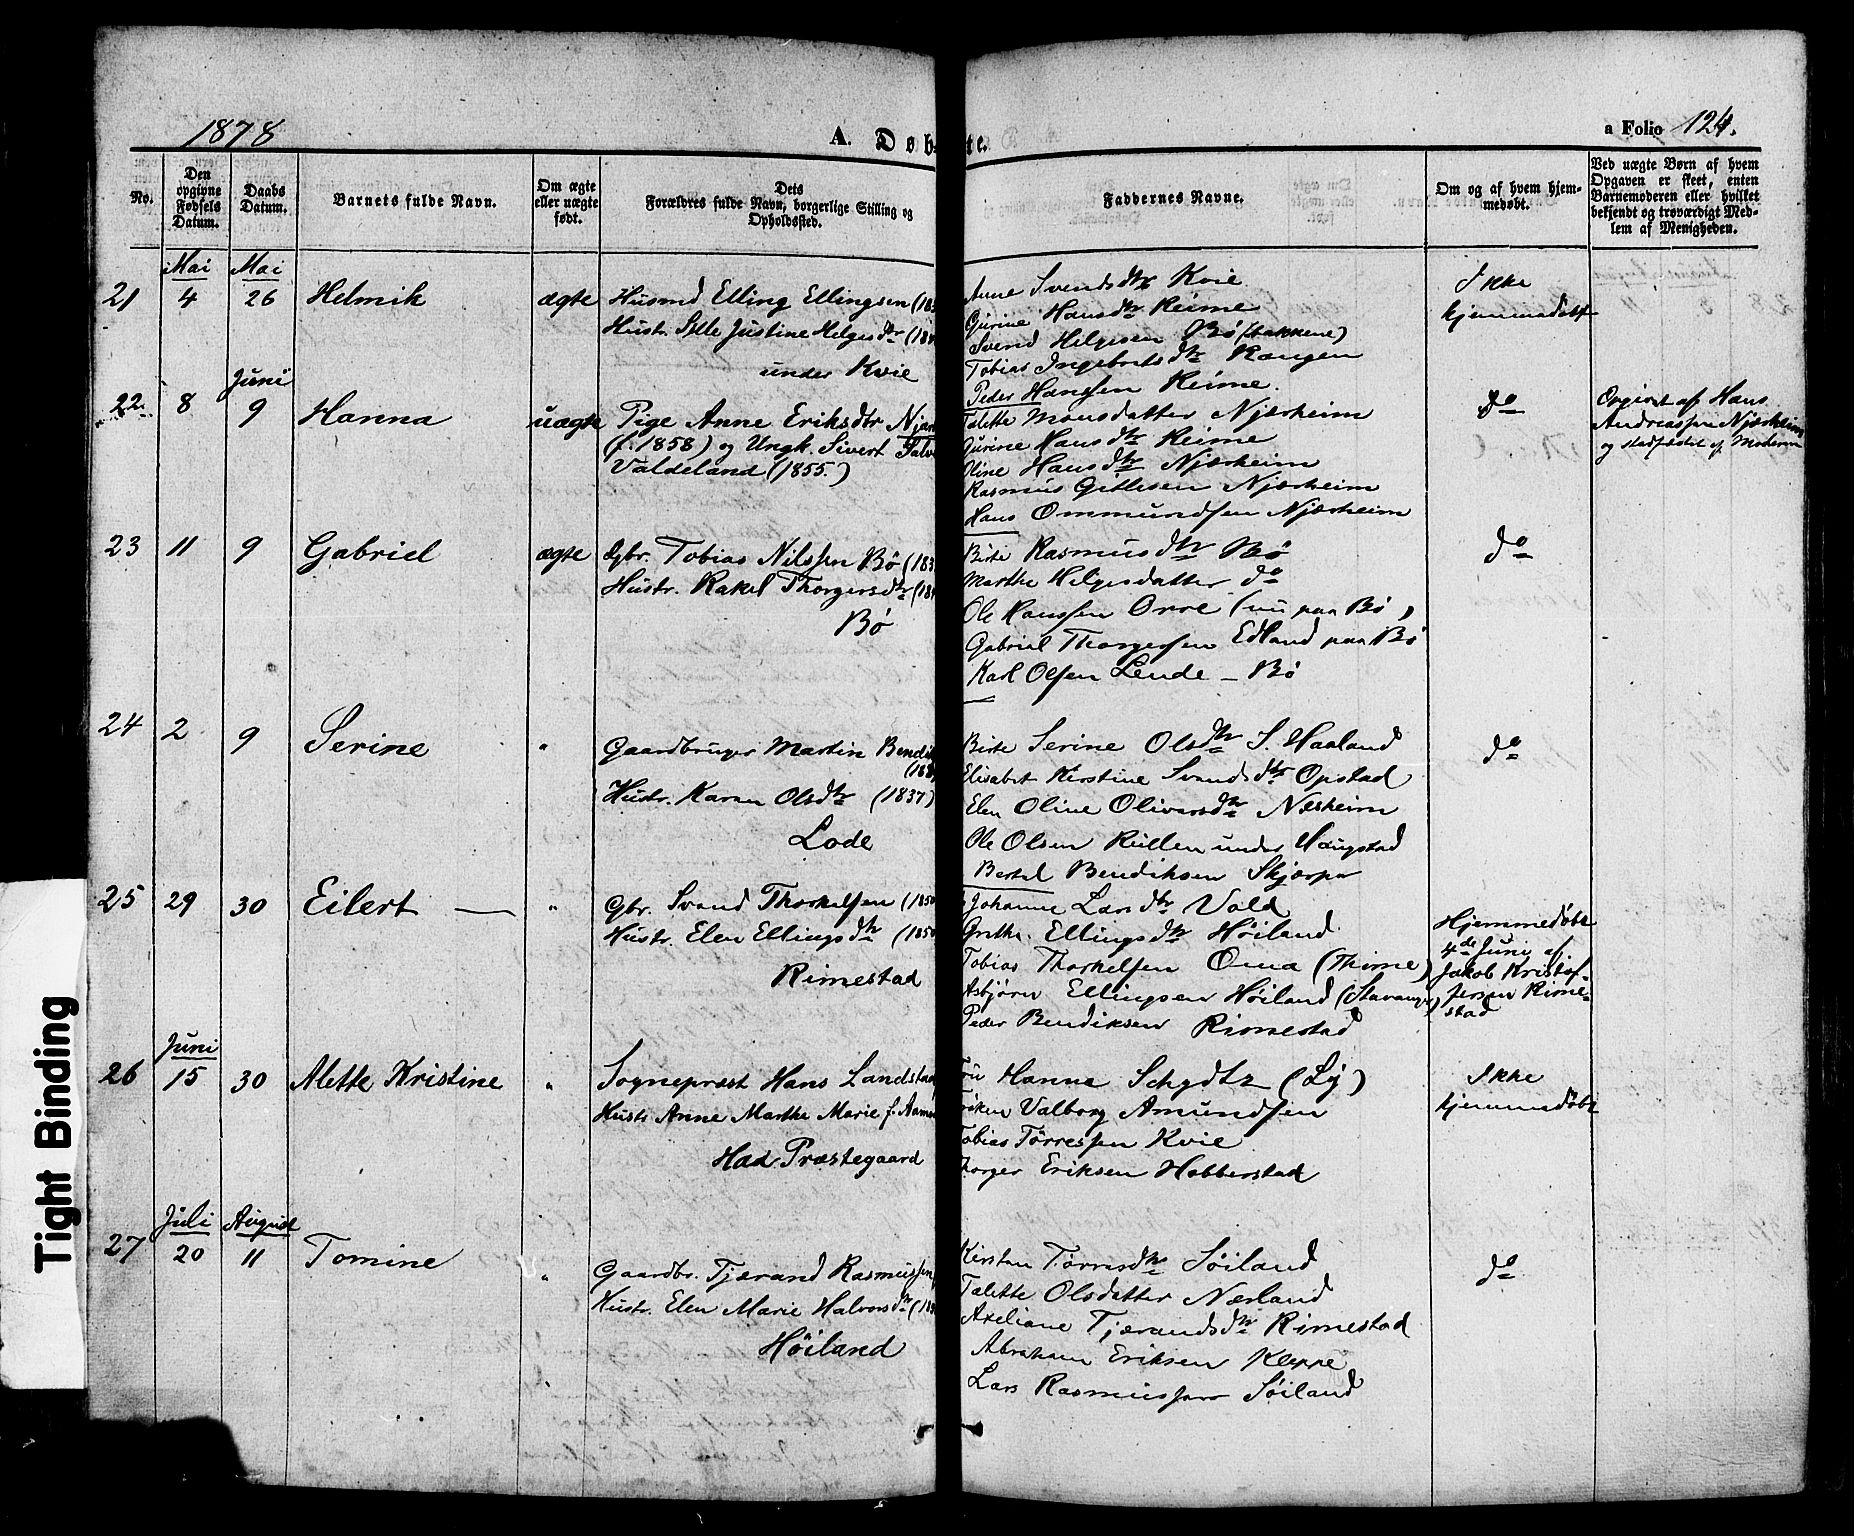 1878
A. Døbte.
a Folio 124.
No.
Den opgivne Fødsels Datum.
Daabs Datum.
Barnets fulde Navn.
Om ægte eller uægte født.
Dets Forældres fulde Navn, borgerlige Stilling og Opholdssted.
Faddernes Navne.
Om og af hvem hjemmedøbt.
Ved uægte Børn af hvem Opgaven er skeet, enten Barnemoderen eller hvilket bekjendt og troværdigt Medlem af Menigheden.
Mai Mai
21 4 26 Helmik ægte Husmd Elling Ellingsen (183
Hustr. Justine Helgesdtr (184
under Kvie
Anne Svendsdtr Kvie
Gurine Hansdtr Reime
Svend Helgesen Bø (bakkene)
Tobias Ingebretsdtr Kongen
Peder Hanssen Reime.
Ikke
hjemmedøbt
Juni
22. 8 9 Hanna uægte Pige Anne Eriksdtr Njær
(f. 1858) og Ungk. Sivert
Valdeland (1855.)
Talette Monsdatter Njærheim
Gurine Hansdtr Reime
Oline Hansdtr Njærheim
Rasmus Gitlesen Njærheim
Hans Ommundsen Njærheim
do
Opgivet af Hans
Andreassen Njærheim
og stadfæstet af Moderen
23 11 9 Gabriel ægte Gbr. Tobias Nilssen Bø (183
Hustr. Rakel Thorgersdtr (184
Bø
Birte Rasmusdtr Bø
Marthe Helgesdatter do
Ole Hanssen Orre (nu paa Bø)
Gabriel Thorgersen Edland paa Bø
Karl Olsen Lende - Bø
do
24 2 9 Serine " Gaardbruger Martin Bendik
(183
Hustr. Karen Olsdtr (1837)
Lode
Birte Serine Olsdtr S. Haaland
Elisabet Kirstine Svendsdtr Opstad
Elen Oline Oliversdtr Næsheim
Ole Olsen Reillen under Haugstad
Bertel Bendiksen Skjærpe
do
25 29 30 Eilert — " Gbr. Svend Thorkelsen (1850
Hustr. Elen Ellingsdtr (1850
Rimestad
Johanne Larsdtr Vold
Grethe Ellingsdtr Høiland
Tobias Thorkelsen Oma (Thime)
Asbjørn Ellingsen Høiland (Stavanger)
Peder Bendiksen Rimestad
Hjemmedøbt
4de Juni af
Jakob Kristof-
fersen Rime-
stad
Juni
26 15 30 Alette Kristine " Sogneprest Hans Landstad
Hustr Anne Marthe Marie f. Aamo
Haa Præstegaard
Fru Hanna Schydtz (Ly)
Frøken Valborg Amundsen
Tobias Tørressen Kvie
Thorger Eriksen Hobberstad
Ikke
hjemmedøbt
Juli August
27 20 11 Tomine " Gaardbr. Tjærand Rasmussen
Hustr. Elen Marie Halvorsdtr (18
Høiland
Kirsten Tørresdtr Søiland
Talette Olsdatter Nærland
Axeliane Tjærandsdtr Rimestad
Abraham Eriksen Kleppe
Lars Rasmussen Søiland
do
Tight Binding